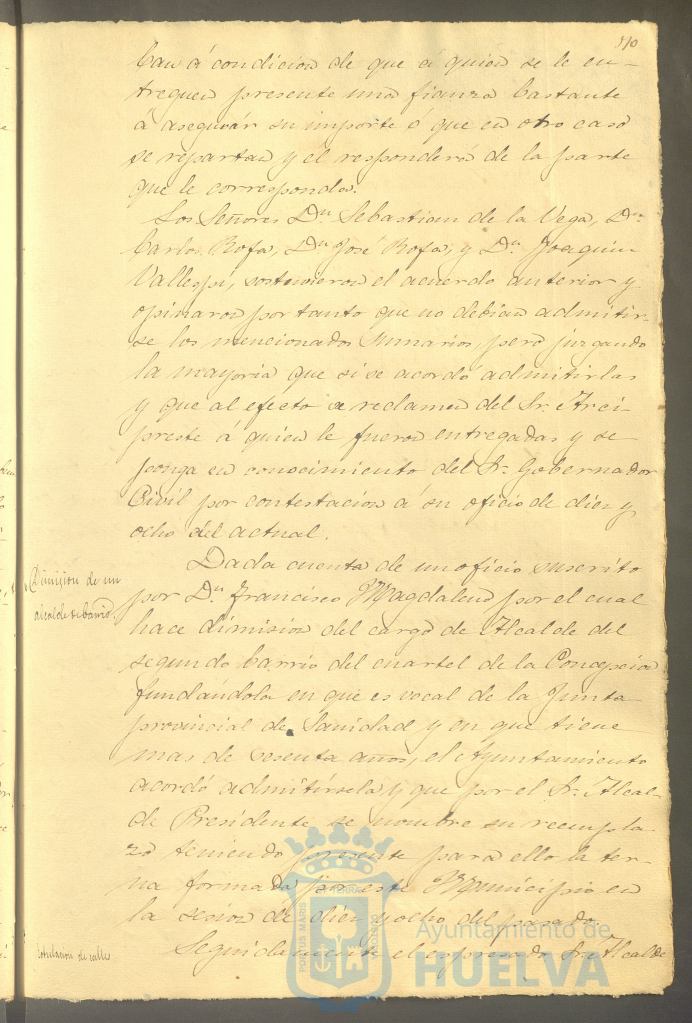 510
ban á condicion de que á quien se le en-
treguen presente una fianza bastante
á asegurar su importe ó que en otro caso
se repartan y el responderá de la parte
que le corresponda.
Los Señores Dn. Sebastian de la Vega, Dn.
Carlos Rofa, Dn. José Rofa, y Dn. Joaquin
Vallespi, sostuvieron el acuerdo anterior y
opinaron por tanto que no debian admitir-
se los mencionados sumarios, pero juzgando
la mayoria que si se acordó admitirlas
y que al efecto se reclamen del Sr. Arci-
preste á quien le fueron entregadas y se
ponga en conocimiento del Sr. Gobernador
Civil por contestacion á su oficio de diez y
ocho del actual.
Dimision de un
alcalde de barrio.
Dada cuenta de un oficio suscrito
por Dn. Francisco Magdaleno por el cual
hace dimision del cargo de Alcalde del
segundo barrio del cuartel de la Concepcion
fundándola en que es vocal de la Junta
provincial de Sanidad y en que tiene
mas de sesenta años, el Ayuntamiento
acordó admitírsela y que por el Sr. Alcal-
de Presidente se nombre su reempla-
zo teniendo presente para ello la ter-
na formada por este Municipio en
la sesion de diez y ocho del pasado.
Rotulacion de calles
Seguidamente el espresado Sr. Alcalde
PORTUS MARIS ET TERRAE CUSTODIO
Ayuntamiento de
HUELVA